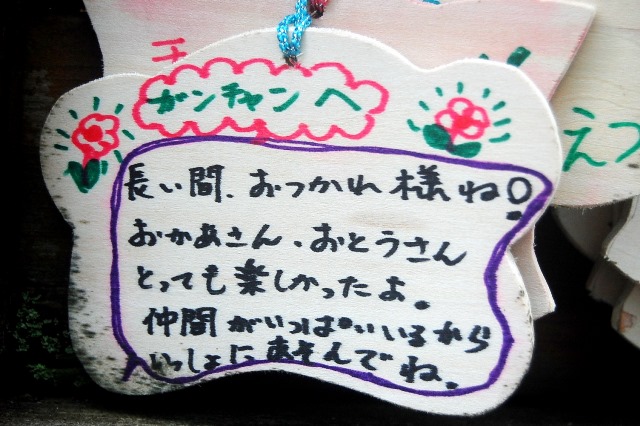 ガンチャンへ
長い間、おつかれ様ね!
おかあさん、おとうさん
とっても楽しかったよ。
仲間がいっぱいいるから
いっしょにあそんでね。
えつ